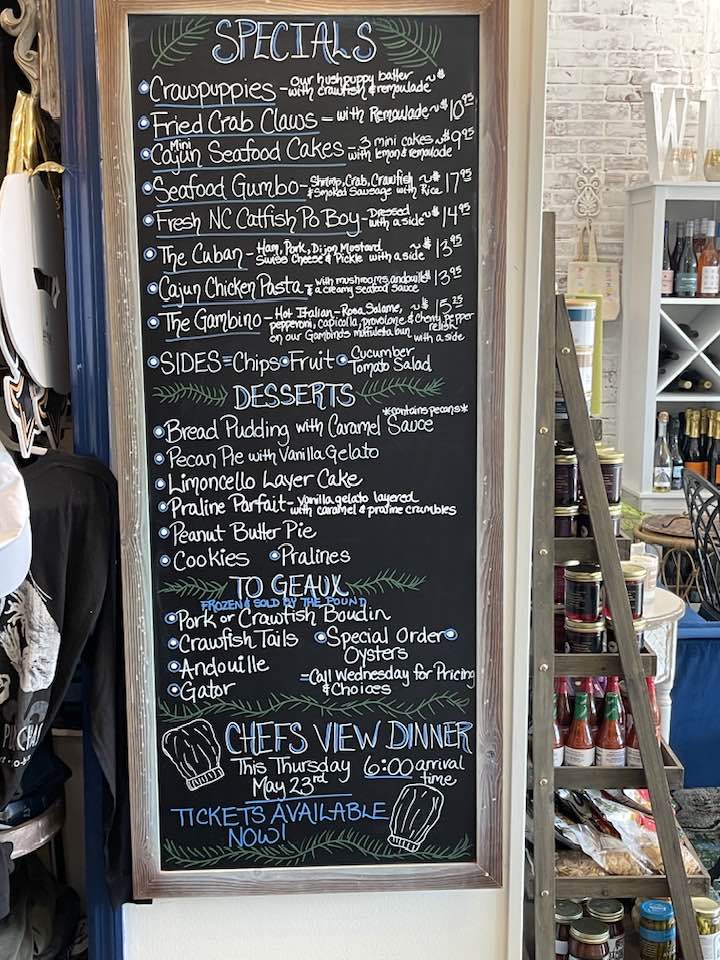 SPECIALS
Crawpuppies - our hushpuppy batter
with crawfish & remoulade ~ $
Fried Crab Claws - with Remoulade ~ $ 10.95
Mini
Cajun Seafood Cakes - 3 mini cakes ~ $ 9.95
with lemon & remoulade
Seafood Gumbo - Shrimp, Crab, Crawfish ~ $ 17.95
& Smoked Sausage with Rice
Fresh NC Catfish Po Boy - Dressed ~ $ 14.95
with a side
The Cuban - Ham, Pork, Dijon Mostard ~ $ 13.95
Swiss Cheese & Pickle with a side
Cajun Chicken Pasta - with mushrooms, andouille $ 13.95
& a creamy seafood sauce
The Gambino - Hot Italian - Rosa Salame, ~ $ 15.25
pepperoni, capicolla, provolone & cherry pepper
on our Gambinos muffuletta bun relish
with a side
SIDES = Chips • Fruit • Cucumber
Tomato Salad
DESSERTS
*contains pecans*
Bread Pudding with Caramel Sauce
Pecan Pie with Vanilla Gelato
Limoncello Layer Cake
Praline Parfait - vanilla gelato layered
with caramel & praline crumbles
Peanut Butter Pie
Cookies • Pralines
TO GEAUX
FROZEN & SOLD BY THE POUND
Pork or Crawfish Boudin
Crawfish Tails • Special Order •
Oysters
Andouille
= Call Wednesday for Pricing
& Choices
Gator
CHEFS VIEW DINNER
This Thursday 6:00 arrival
May 23rd time
TICKETS AVAILABLE
NOW!
W